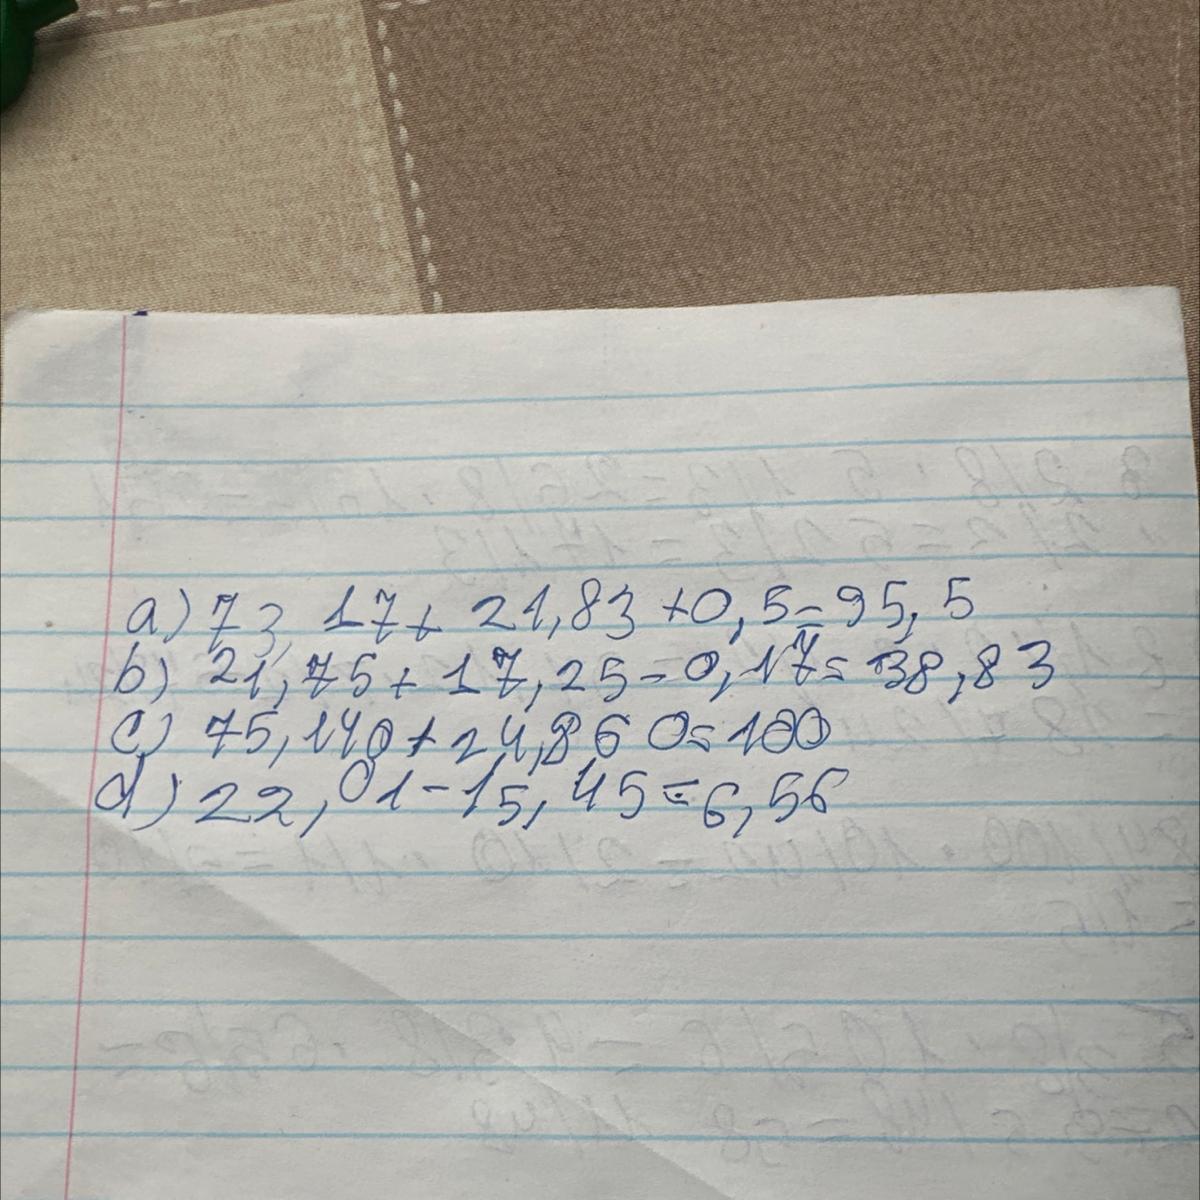 a) 73,17+21,83+0,5=95,5
b) 21,75+17,25-0,17=38,83
c) 75,140+24,860=100
d) 22,01-15,45=6,56